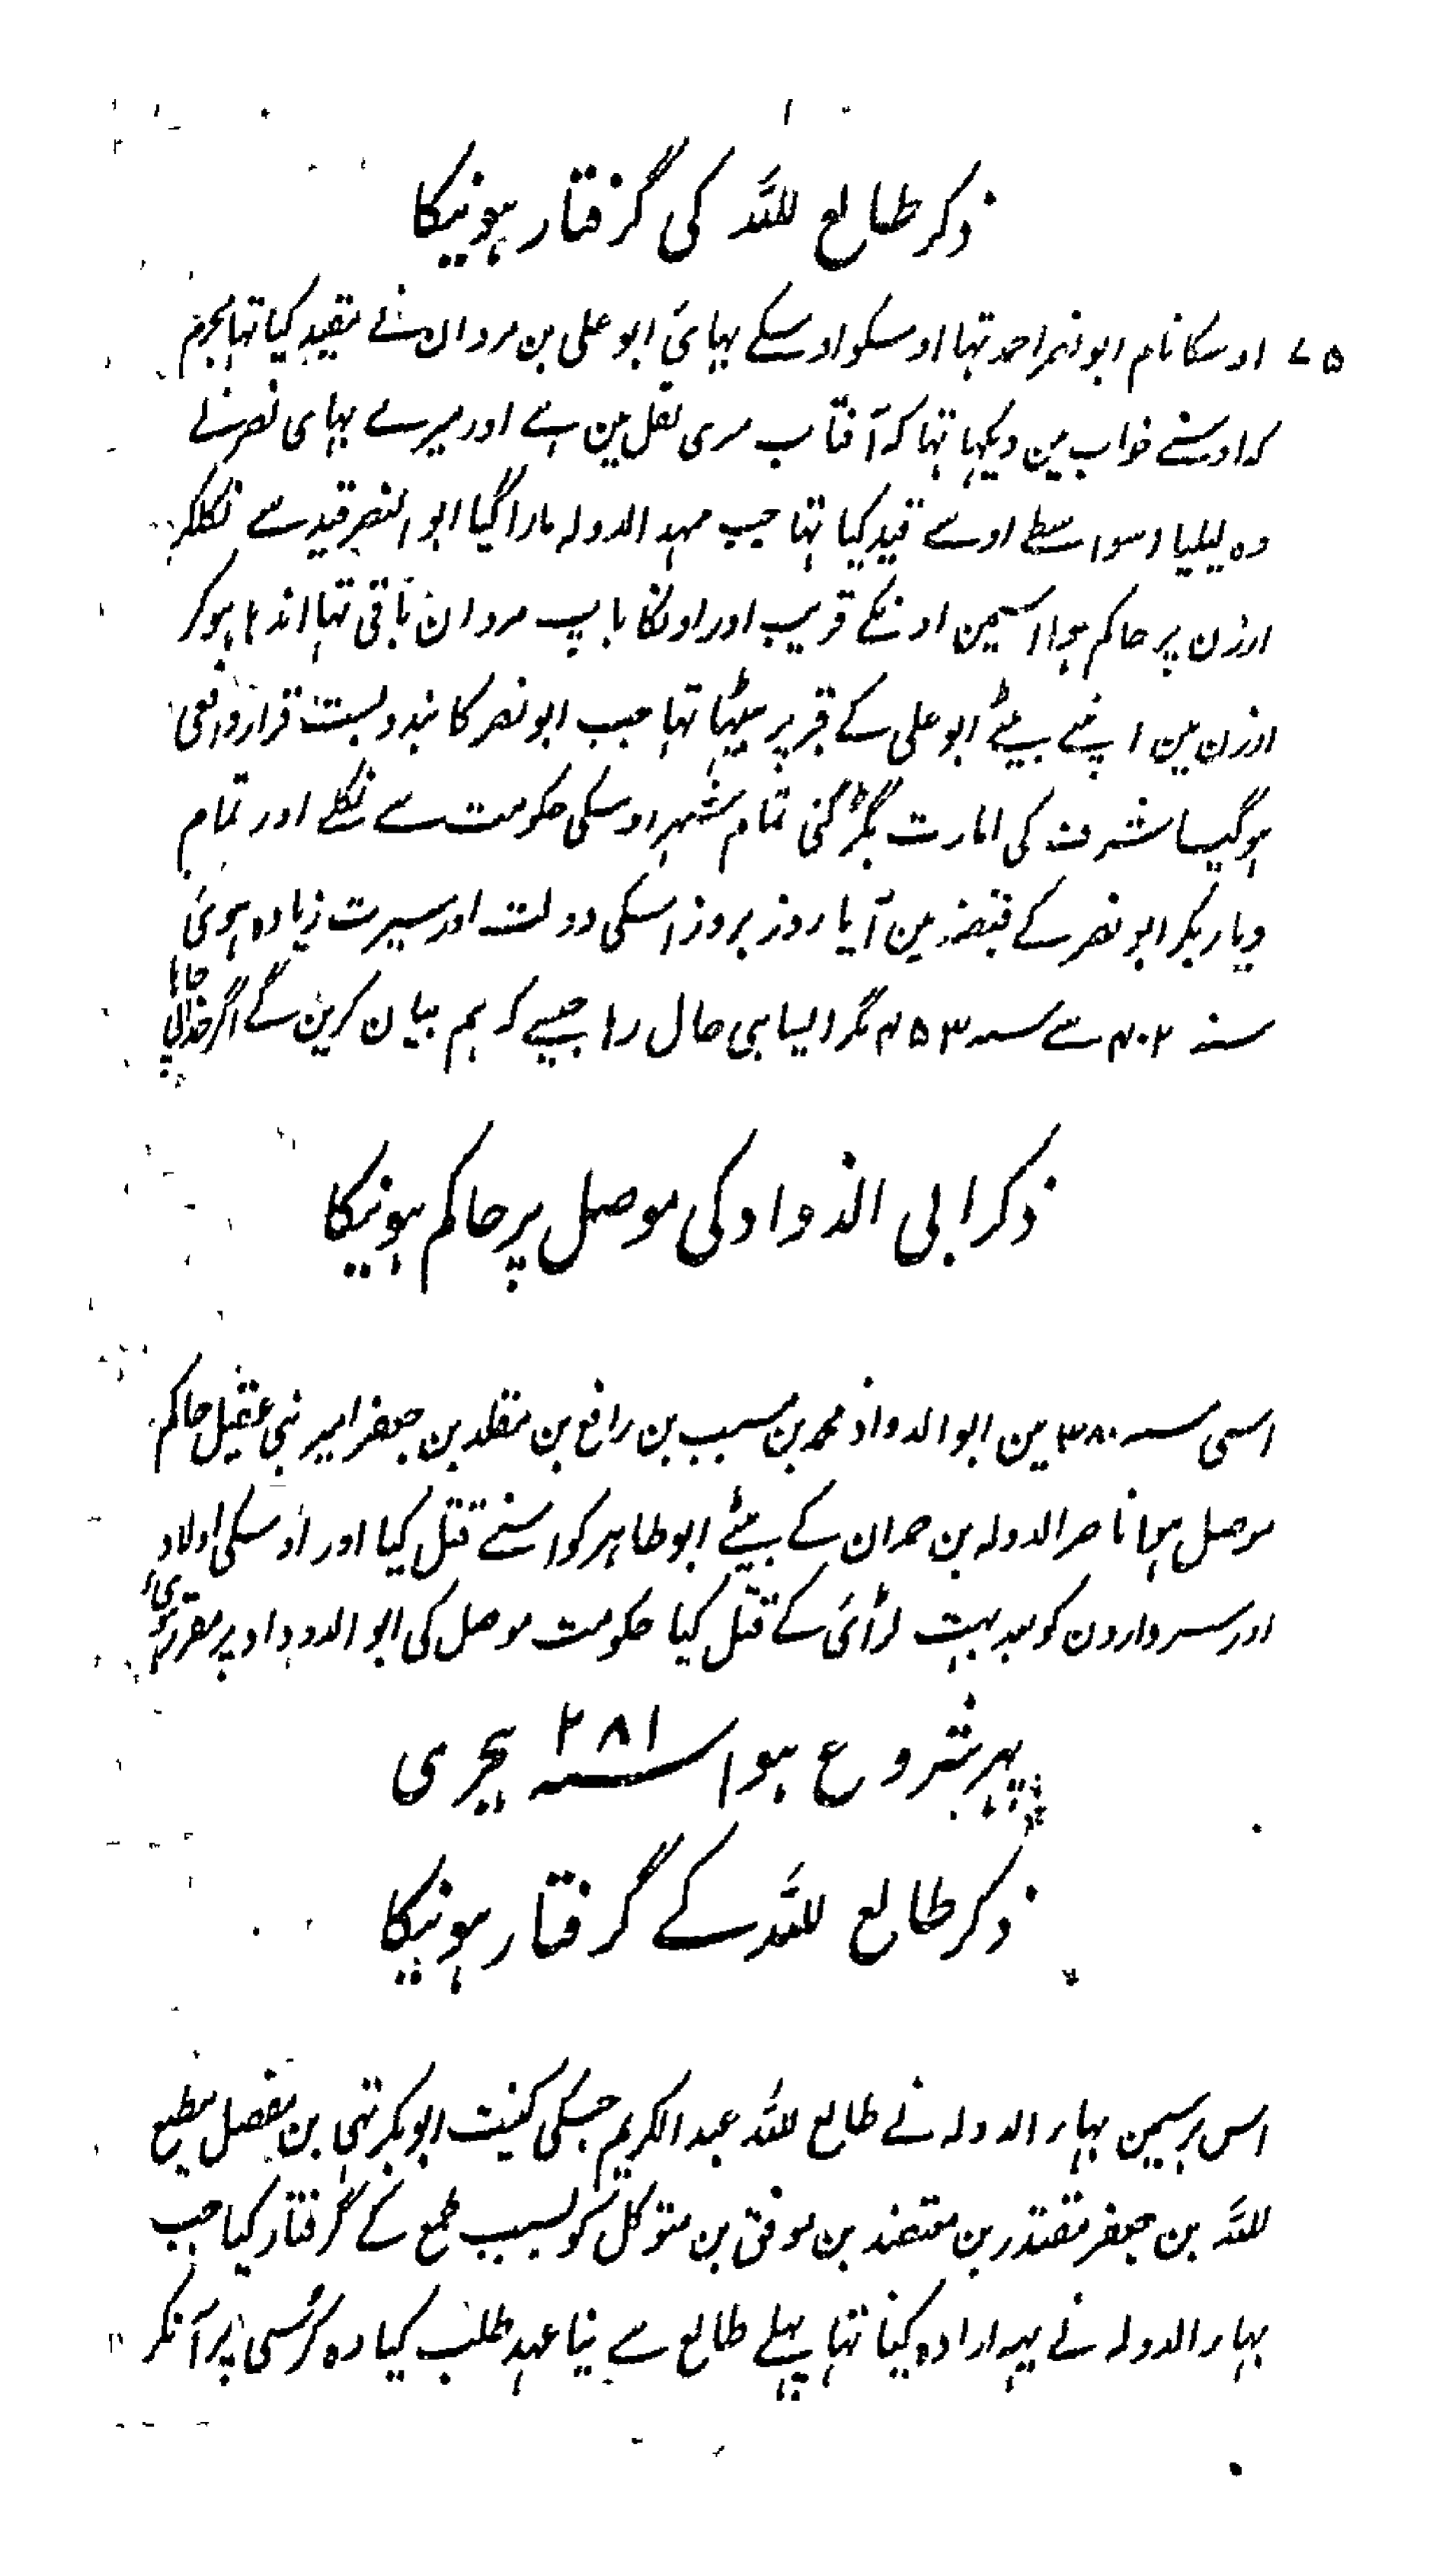 ذکر طالع للہ کی گرفتار ہونیکا
۷۵
اوسکا نام ابو نصر احمد تہا اوسکو اوسکے بہائی ابو علی بن مروان نے مقید کیا تہا بجرم
کہ اوسنے خواب مین دیکہا تہا کہ آفتاب مری بغل مین ہے اور میرے بہای نصر نے
وہ لیلیا اسواسطے اوسے قید کیا تہا جب مہد الدولہ مارا گیا ابو النصر قید سے نکلکر
ارزن پر حاکم ہوا اسیمن اونکے قریب اور اونکا باپ مروان باقی تہا اندہا ہو کر
ارزن مین اپنے بیٹے ابو علی کے قبر پر بیٹہا تہا جب ابو نصر کا بندوبست قرار واقعی
ہوگیا شرف کی امارت بگڑ گئی تمام شہر اوسکی حکومت سے نکلے اور تمام
دیار بکر ابو نصر کے قبضہ مین آیا روز بروز اسکی دولت اور سیرت زیادہ ہوئی
سنہ ۴۰۲ سے سنہ ۴۵۳ مگر ایسا ہی حال رہا جیسے کہ ہم بیان کرین گے اگر خدانے چاہا
ذکر ابی الذواد کی موصل پر حاکم ہونیکا
اسی سنہ ۳۸۰ مین ابو الدواذ محمد بن مسیب بن رافع بن مقلد بن جعفر امیر بنی عقیل حاکم
موصل ہوا ناصر الدولہ بن حمدان کے بیٹے ابو طاہر کو اسنے قتل کیا اور اوسکی اولاد
اور سردارون کو بعد بہت لڑائی کے قتل کیا حکومت موصل کی ابو الدوداد پر مقرر ہوئی
پہر شروع ہوا سنہ ۲۸۱ ہجری
ذکر طالع للہ کے گرفتار ہونیکا
اس برسیمن بہار الدولہ نے طالع للہ عبد الکریم جسکی کنیت ابو بکر تہی بن مفصل مطیع
للہ بن جعفر مقتدر بن معتضد بن موفق بن متوکل کو بسبب طمع کے گرفتار کیا جب
بہار الدولہ نے یہہ ارادہ کیا تہا پہلے طالع سے نیا عہد طلب کیا وہ کرسی پر آنکر